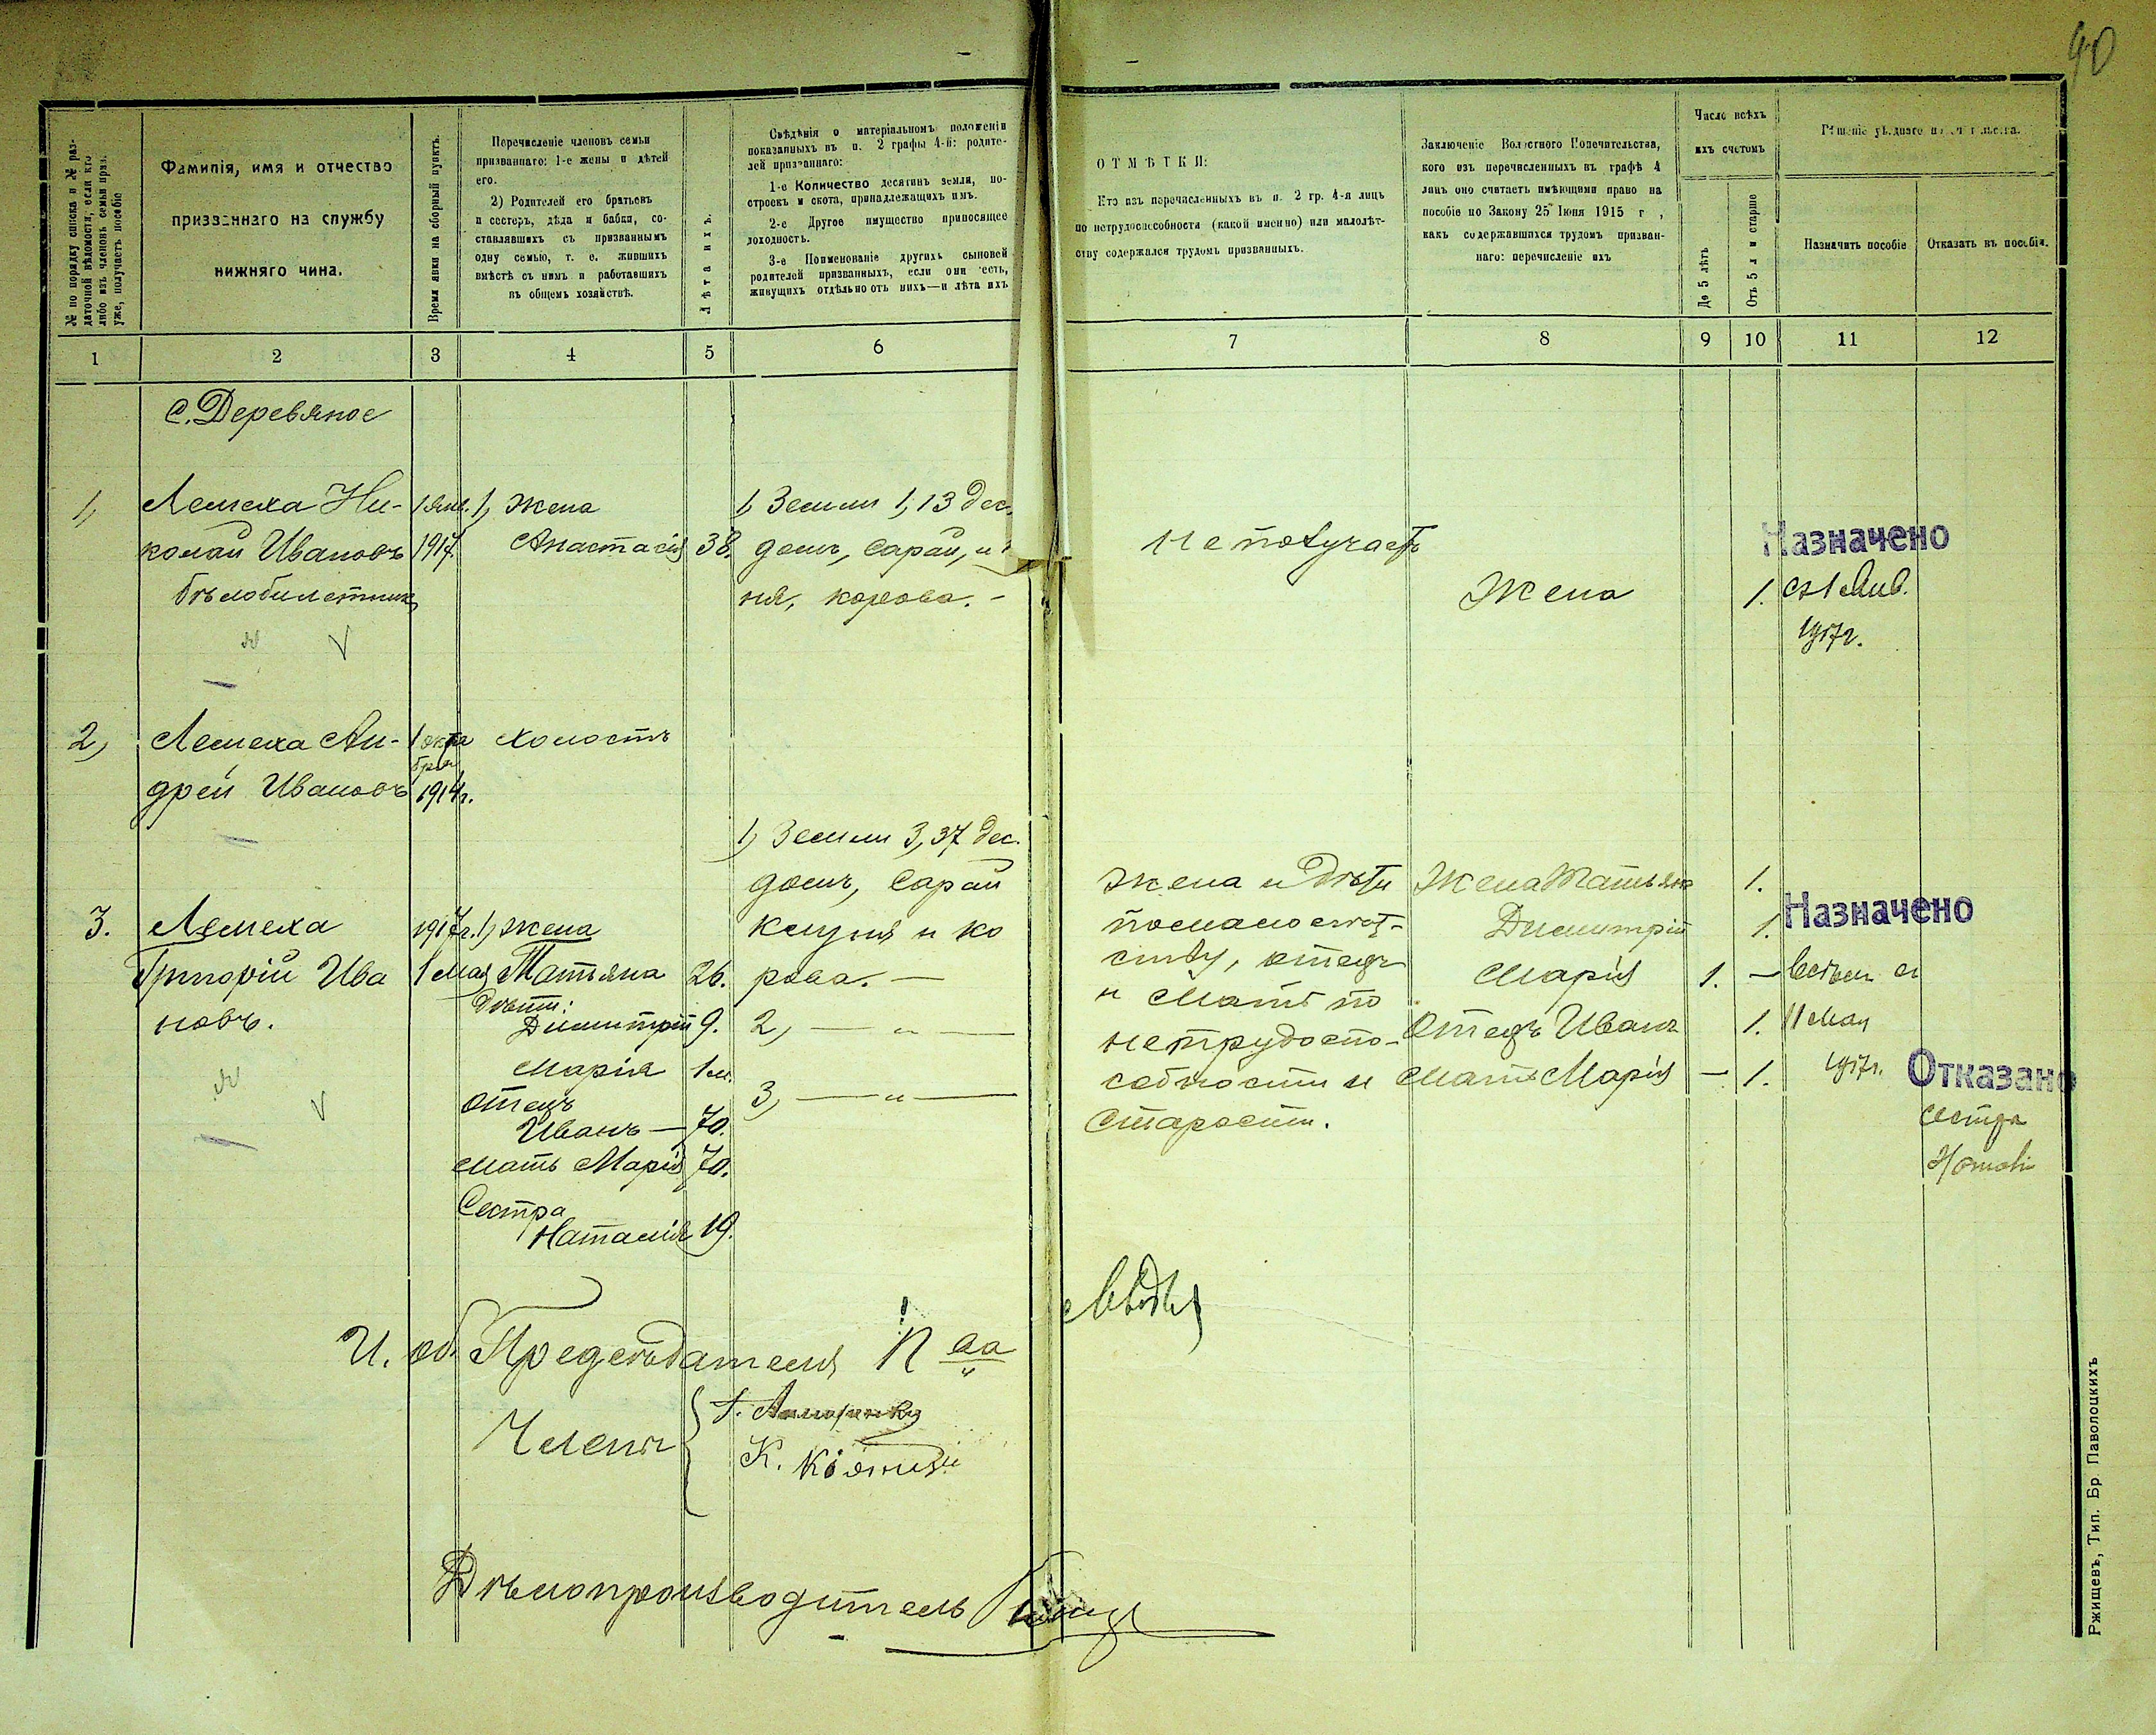 40
№ по порядку списка и № раз-
даточной вѣдомости, если кто
либо изъ членовъ семьи приз.
уже, получаетъ пособіе
Фамилія, имя и отчество
призваннаго на службу
нижняго чина.
Время явки на сборный пунктъ.
Перечисленіе членовъ семьи
призваннаго: 1-е жены и дѣтей
его.
2) Родителей его братьевъ
и сестеръ, дѣда и бабки, со-
ставлявшихъ съ призваннымъ
одну семью, т. е. жившихъ
вмѣстѣ съ нимъ и работавшихъ
въ общемъ хозяйствѣ.
Лѣта ихъ.
Свѣдѣнія о матеріальномъ положеніи
показанныхъ въ п. 2 графы 4-й: родите-
лей призваннаго:
1-е Количество десятинъ земли, по-
строекъ и скота, принадлежащихъ имъ.
2-е Другое имущество приносящее
доходность.
3-е Поименованіе другихъ сыновей
родителей призванныхъ, если они есть,
живущихъ отдѣльно отъ нихъ—и лѣта ихъ
ОТМѢТКИ:
Кто изъ перечисленныхъ въ п. 2 гр. 4-я лицъ
по нетрудоспособности (какой именно) или малолѣт-
ству содержался трудомъ призванныхъ.
Заключеніе Волостного Попечительства,
кого изъ перечисленныхъ въ графѣ 4
лицъ оно считаетъ имѣющими право на
пособіе по Закону 25 Іюня 1915 г ,
какъ содержавшихся трудомъ призван-
наго: перечисленіе ихъ
Число всѣхъ
ихъ счетомъ
До 5 лѣтъ
Отъ 5 л и старше
Рѣшеніе уѣзднаго попечительства.
Назначить пособіе
Отказать въ пособіи.
1 2 3 4 5 6 7 8 9 10 11 12
с. Деревяное
1, Лемеха Ни- 1 Янв. 1, Жена 1, Земли 1,13 дес.
колай Ивановъ 1917 Анастасія 38. домъ, сарай, не получаетъ Назначено
бѣлобилетникъ ня, корова. - Жена 1. съ 1 Янв.
1917г.
2, Лемеха Ан- 1 октя холостъ
бря
дрей Ивановъ 1914г.
1, Земли 3,37 дес.
домъ, сарай Жена и Дѣти Жена Татьяна 1.
3. Лемеха 1917г. 1, Жена клуня и ко помалолѣт- Димитрій 1. Назначено
Григорій Ива 1 мая Татьяна 26. рова. — ству, отецъ Марія 1. — всѣмъ съ
новъ. Дѣти: и Мать по
Димитрій 9. 2, — " — нетрудоспо- Отецъ Иванъ 1. 11 мая
Марія 1 м. собности и Мать Марія — 1. 1917г. Отказано
отецъ 3, — " — старости. сестра
Иванъ — 70.
мать Марія 70.
Сестра
Наталія 19.
И. об. Предсѣдателя П ва
Члены
К.
Дѣлопроизводитель
Ржищевъ, Тип. Бр Паволоцкихъ